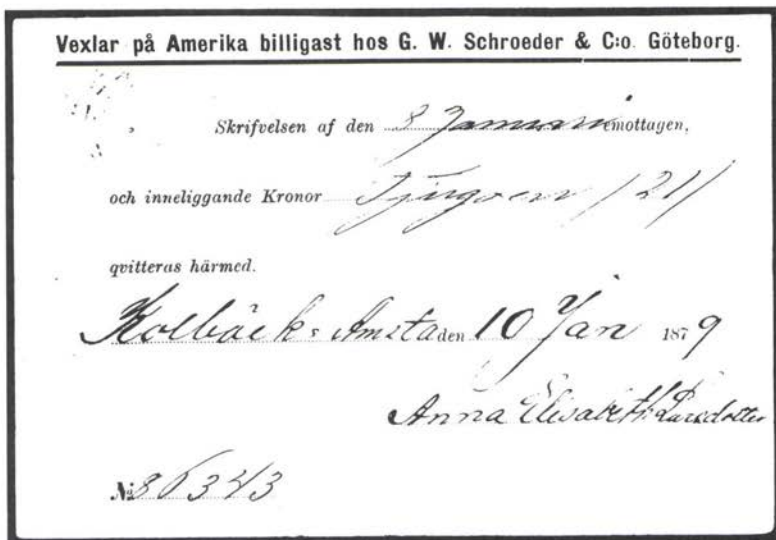 Vexlar på Amerika billigast hos G. W. Schroeder & C:o. Göteborg.
Skrifvelsen af den 8 Januari emottagen,
och inneliggande Kronor Tjugoen /21/
qvitteras härmed.
Kolbäck & Amsta den 10 Jan 1879
Anna Elisabeth Larsdotter
№ 86343